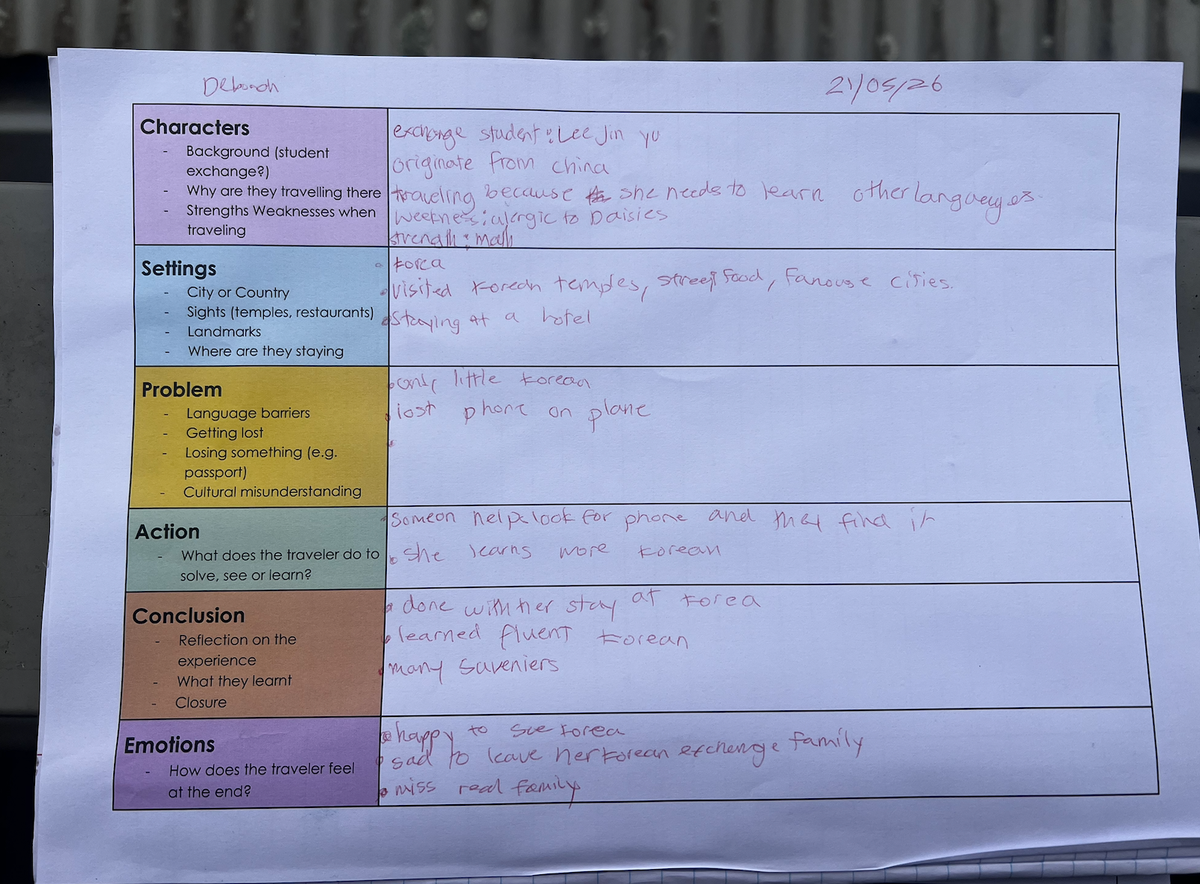 Deborah
21/05/26
Characters
- Background (student
exchange?)
- Why are they travelling there
- Strengths Weaknesses when
traveling
exchange student: Lee Jin yu
originate from china
traveling because she needs to learn other languages.
weeknes: alergic to Daisies
strength: math
Settings
- City or Country
- Sights (temples, restaurants)
- Landmarks
- Where are they staying
korea
visited korean temples, street food, famouse cities.
staying at a hotel
Problem
- Language barriers
- Getting lost
- Losing something (e.g.
passport)
- Cultural misunderstanding
only little korean
lost phone on plane
Action
- What does the traveler do to
solve, see or learn?
someon helps look for phone and they find it
she learns more korean
Conclusion
- Reflection on the
experience
- What they learnt
- Closure
done with her stay at korea
learned fluent korean
many suveniers
Emotions
- How does the traveler feel
at the end?
happy to see korea
sad to leave her korean exchenge family
miss real family